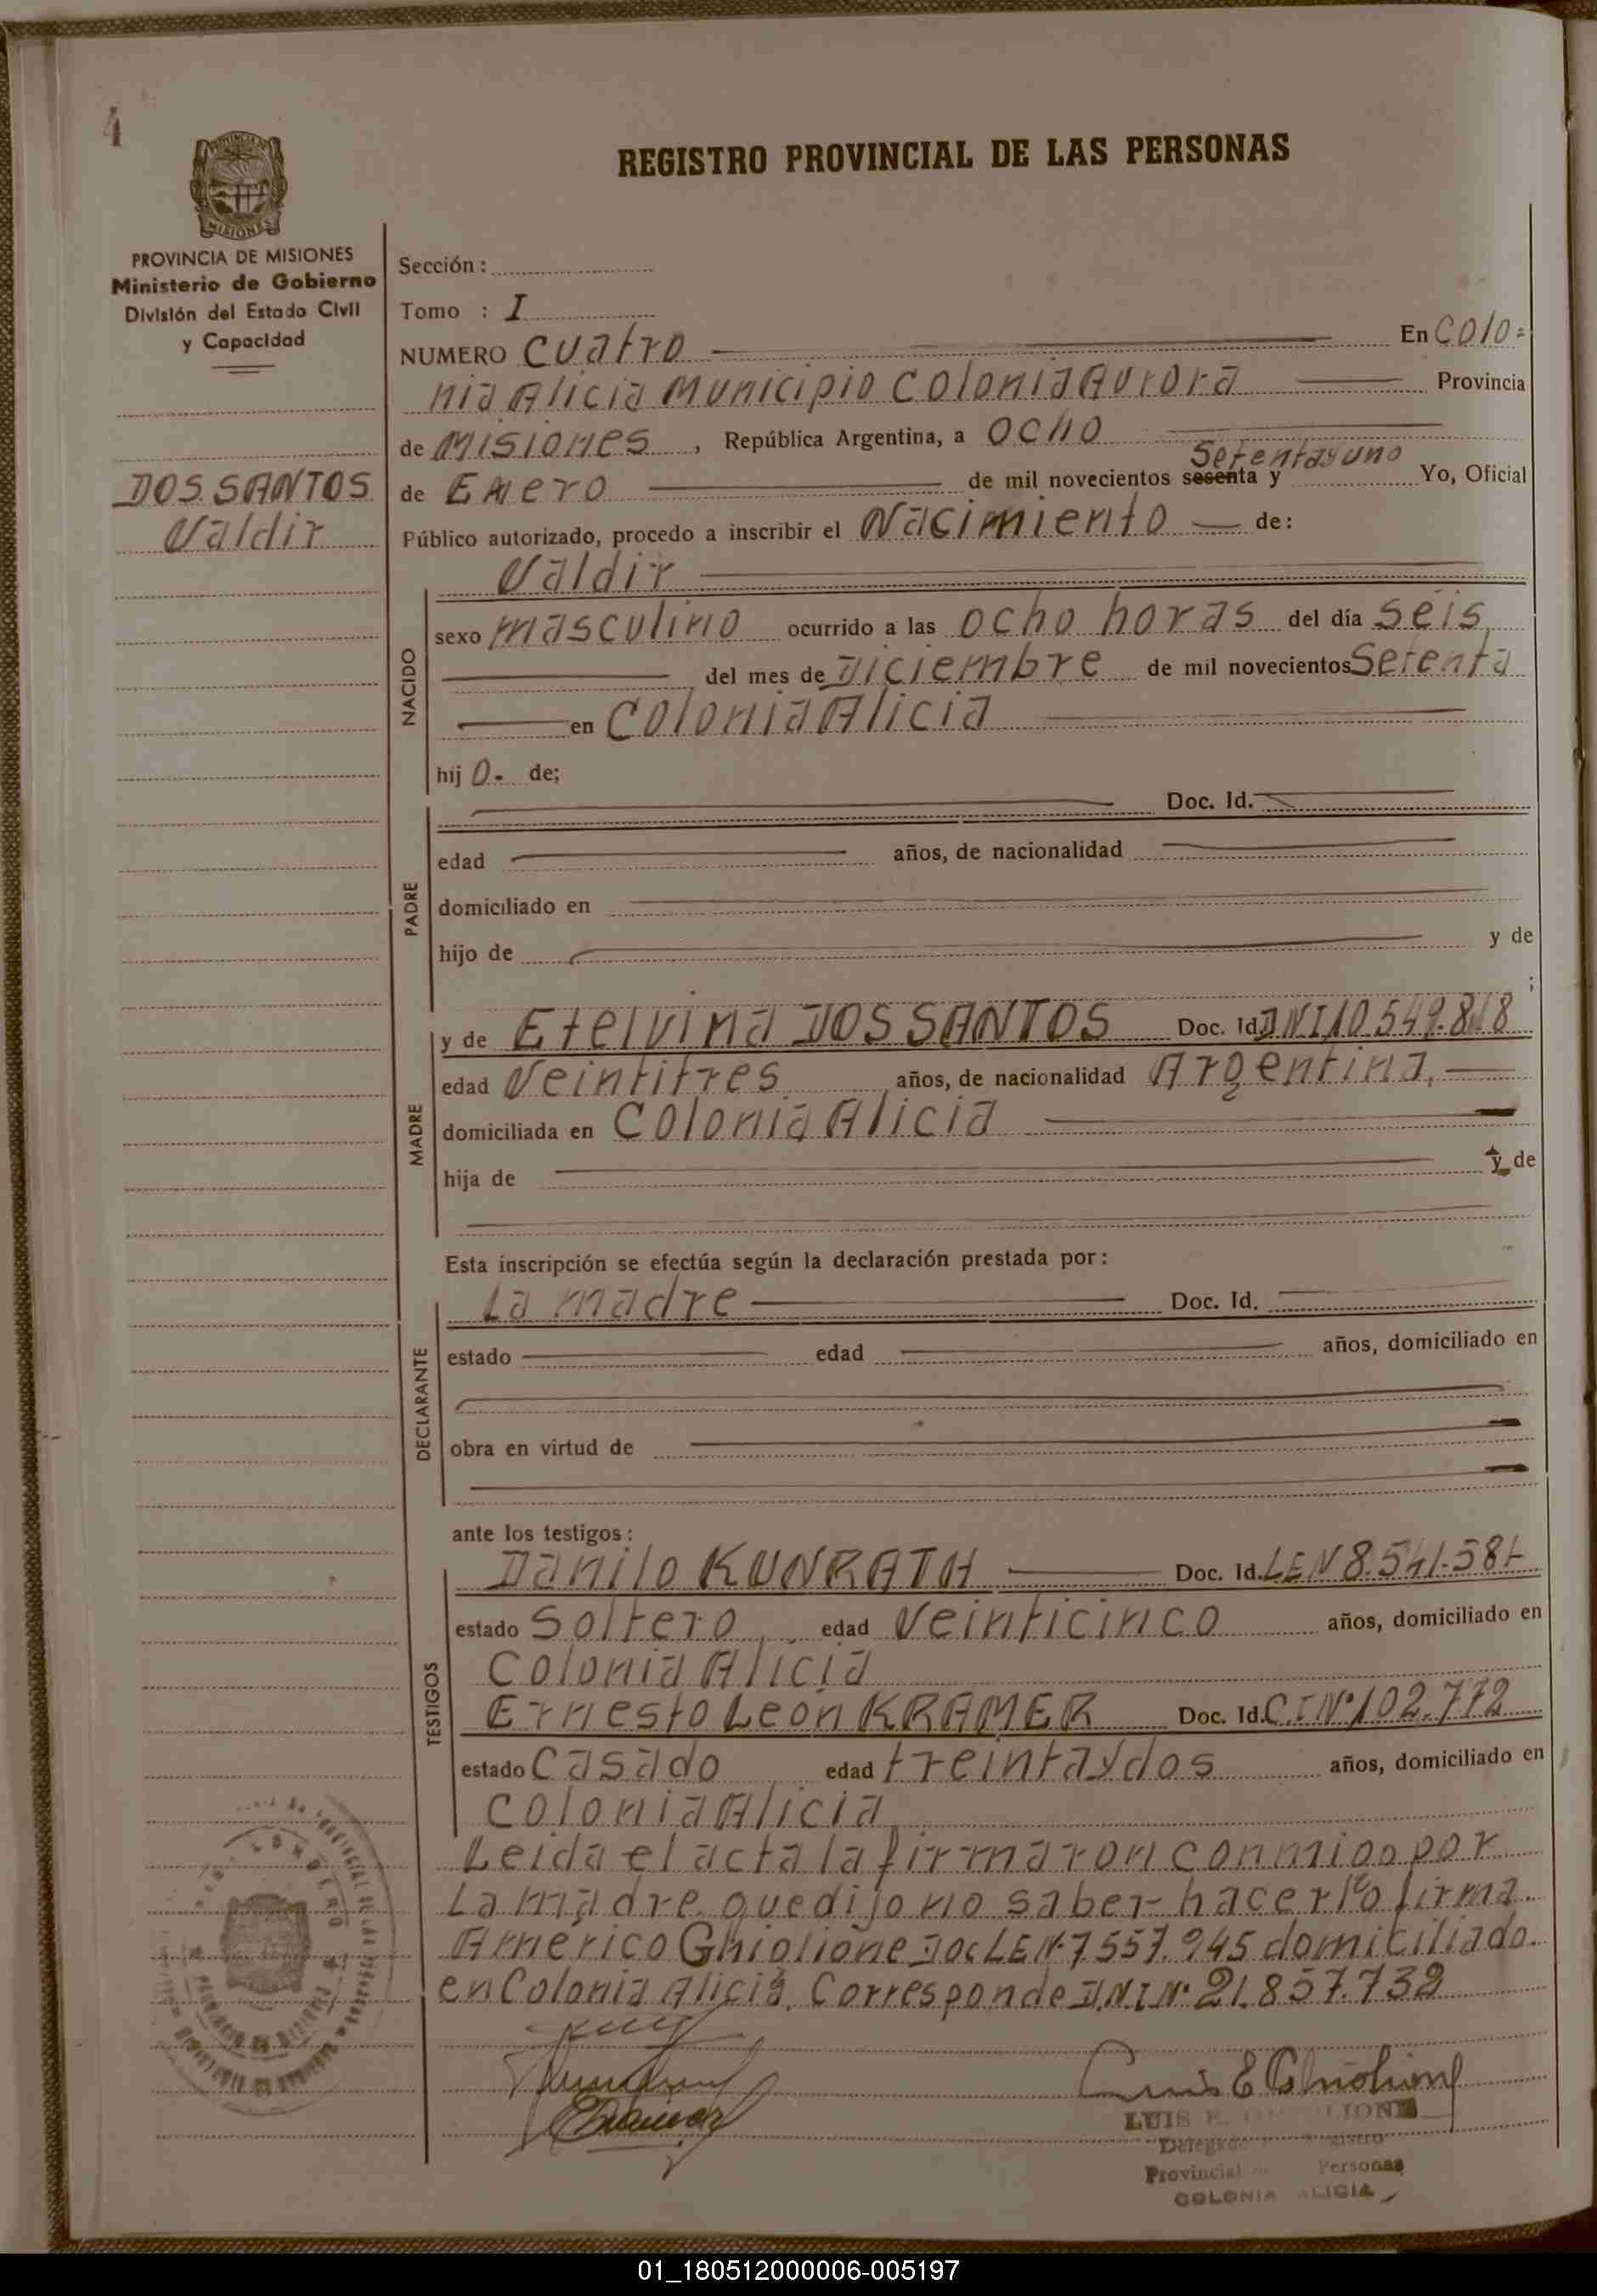 4
REGISTRO PROVINCIAL DE LAS PERSONAS
PROVINCIA DE MISIONES
Ministerio de Gobierno
División del Estado Civil
y Capacidad
DOS SANTOS
Valdir
Sección :
Tomo : I
NUMERO cuatro En Colo=
nia Alicia Municipio Colonia Aurora Provincia
de Misiones, República Argentina, a ocho
de Enero de mil novecientos sesenta y Setentayuno Yo, Oficial
Público autorizado, procedo a inscribir el Nacimiento de:
NACIDO
Valdir
sexo masculino ocurrido a las ocho horas del día seis
del mes de Diciembre de mil novecientos Setenta
en Colonia Alicia
hij o. de;
PADRE
Doc. Id.
edad años, de nacionalidad
domiciliado en
hijo de y de
;
MADRE
y de Etelvina DOS SANTOS Doc. Id. DNI 10.549.818
edad Veintitres años, de nacionalidad Argentina.
domiciliada en Colonia Alicia
hija de y de
Esta inscripción se efectúa según la declaración prestada por:
DECLARANTE
La madre Doc. Id.
estado edad años, domiciliado en
obra en virtud de
ante los testigos:
TESTIGOS
Danilo KUNRATH Doc. Id. LEN 8.541.581-
estado Soltero, edad Veinticinco años, domiciliado en
Colonia Alicia
Ernesto León KRAMER Doc. Id. C.I Nº 102.772
estado Casado edad treintaydos años, domiciliado en
Colonia Alicia
Leida el acta la firmaron conmigo por
La madre que dijo no saber hacerlo firma
Americo Ghiolione Doc LE N·7.557.945 domiciliado
en Colonia Alicia. Corresponde D.N.I Nº 21.857.732
Luis E Ghiolione
LUIS E.
Delegado
Provincial Personas
COLONIA ALICIA
01_180512000006-005197